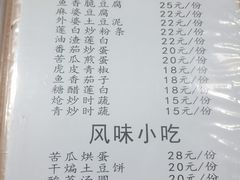 鱼香脆豆腐 25元/份
麻婆豆腐 22元/份
外婆土豆泥 22元/份
莲白炒粉条 22元/份
油渣莲白 22元/份
番茄炒蛋 20元/份
苦瓜煎蛋 20元/份
虎皮青椒 18元/份
鱼香茄子 18元/份
糖醋莲白 18元/份
炝炒时蔬 15元/份
青炒时蔬 15元/份
风味小吃
苦瓜烘蛋 28元/份
干煸土豆饼 20元/份
20元/份